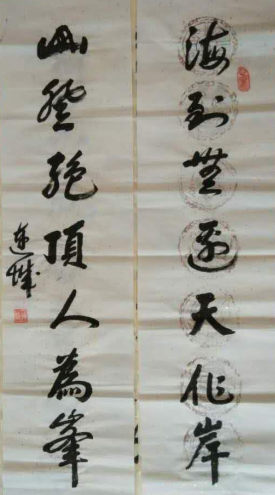 海到無邊天作岸
山登絶頂人為峯
连城